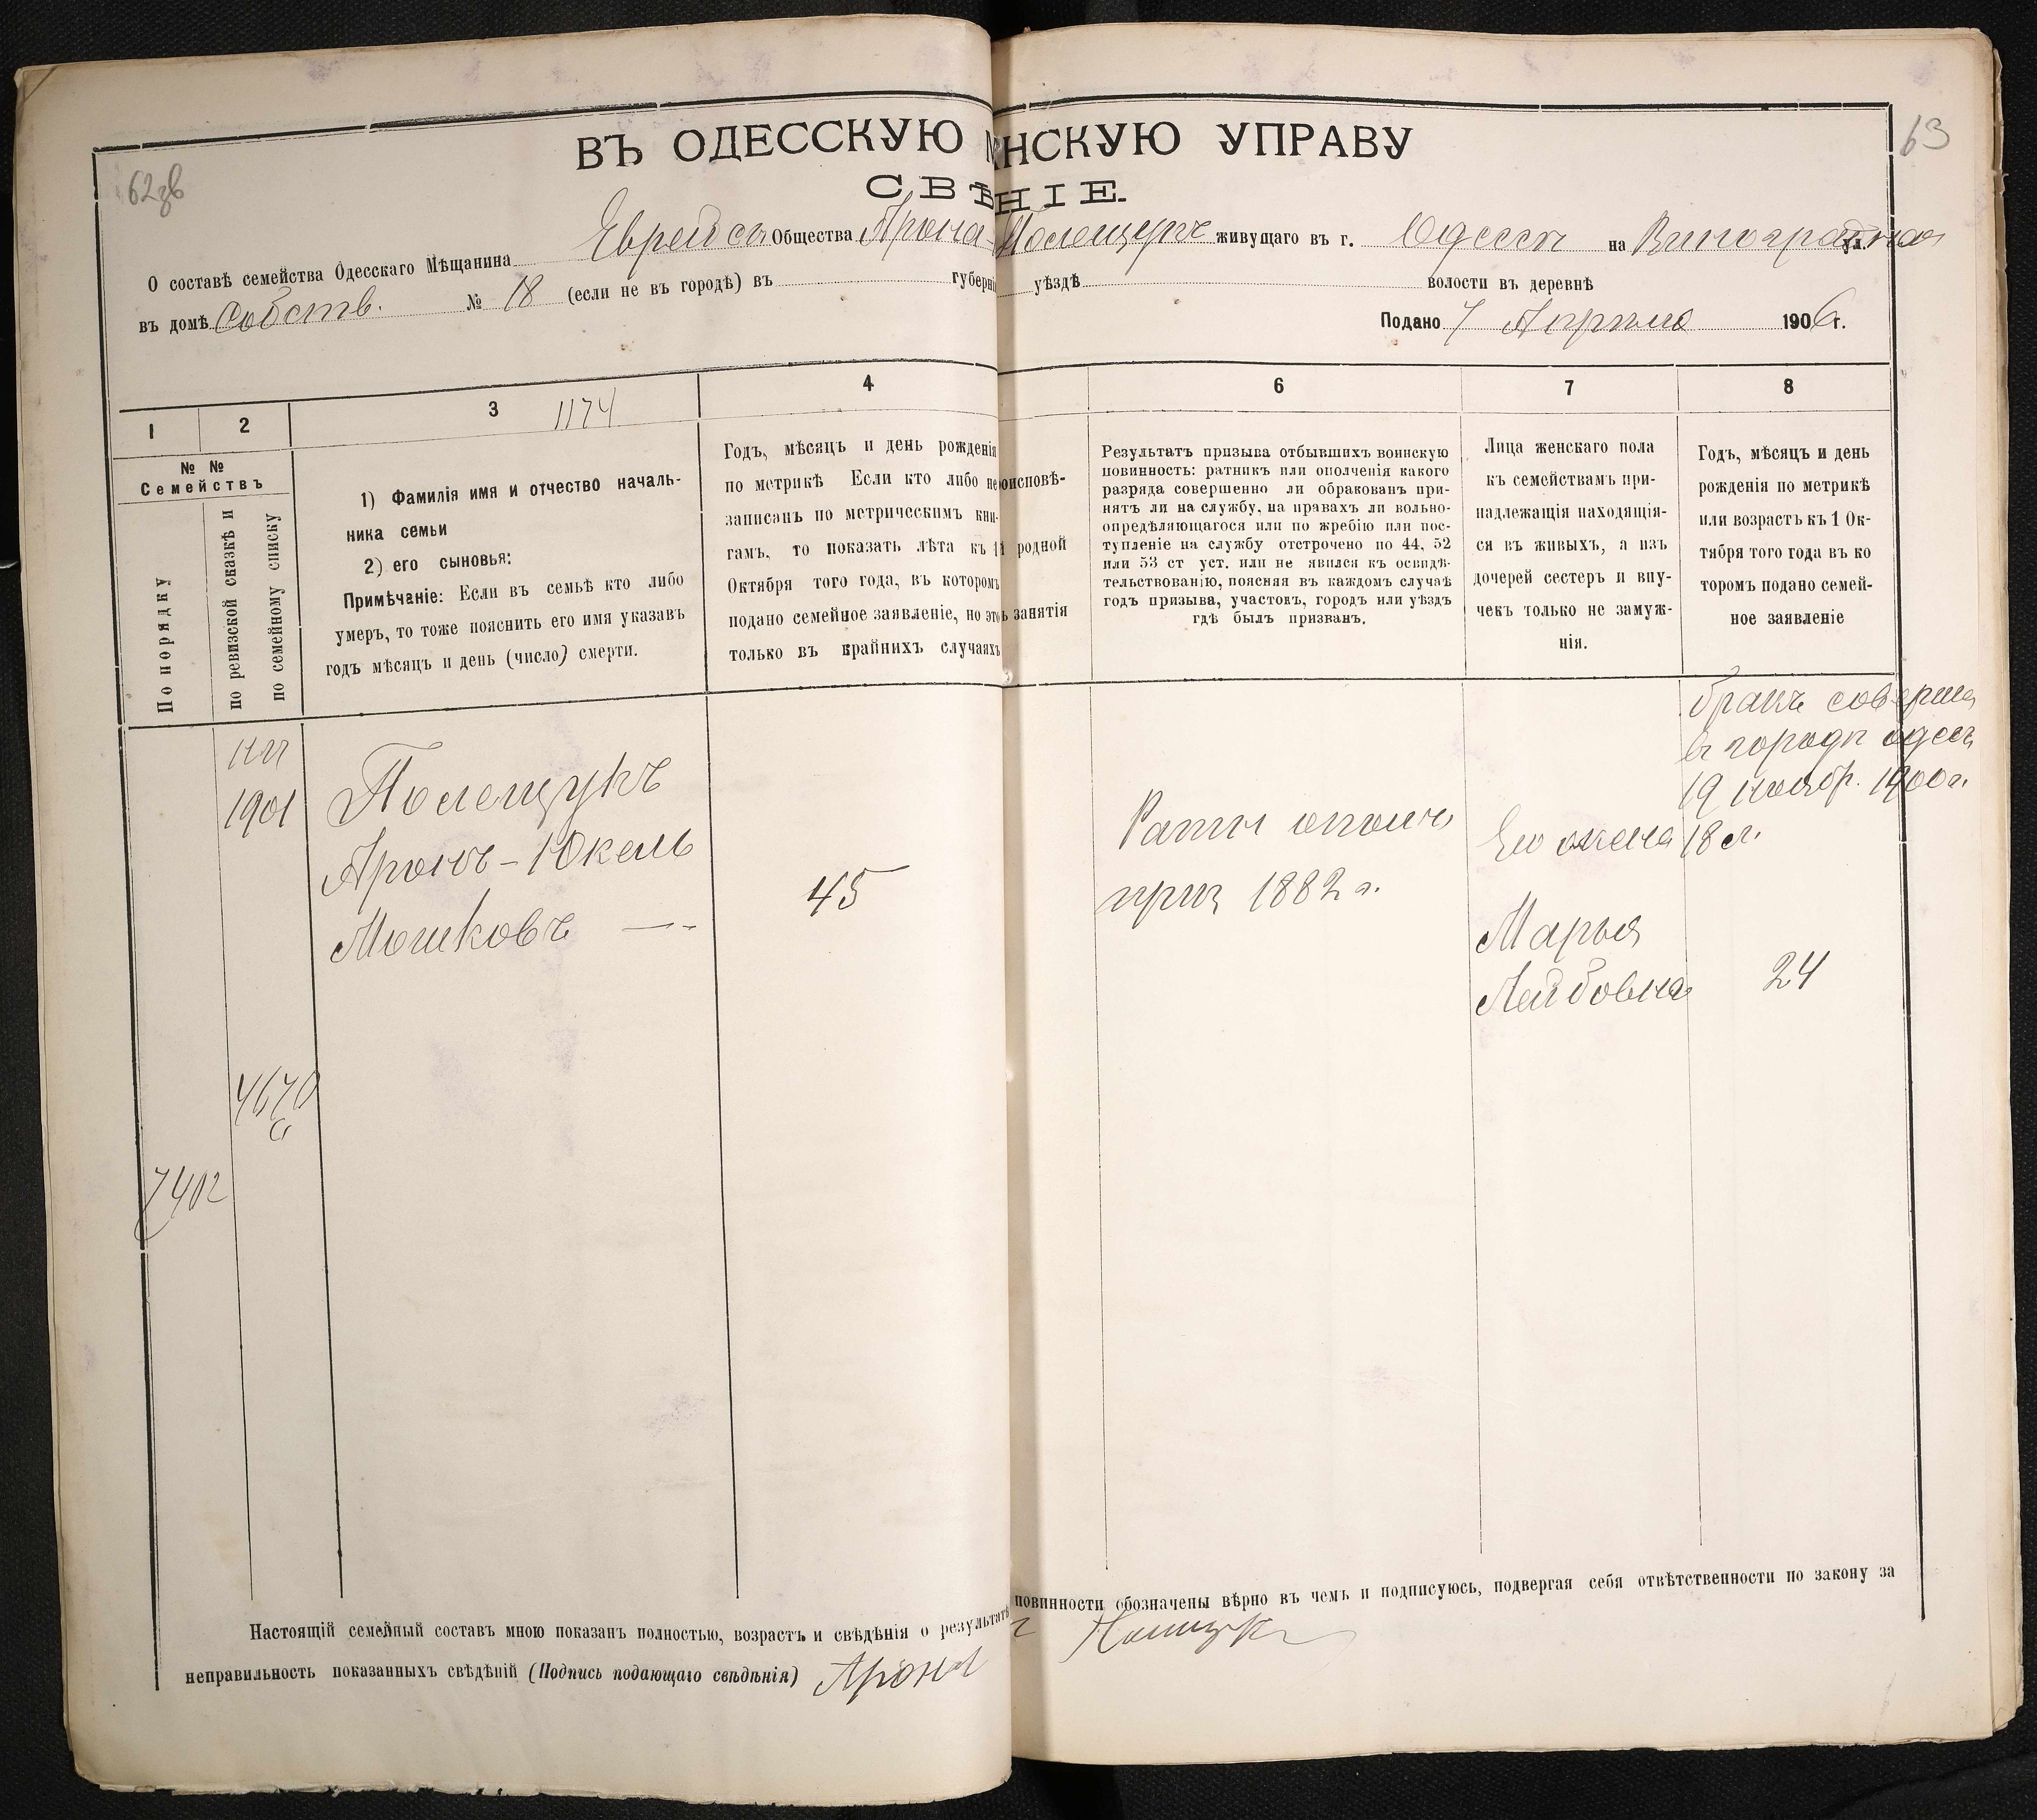 62 зв
63
ВЪ ОДЕССКУЮ НСКУЮ УПРАВУ
СВѢ НІЕ.
О составѣ семейства Одесскаго Мѣщанина Еврейск Общества Арона- Полещукъ живущаго въ г. Одессѣ на Виноградная ул.
въ домѣ собств. № 18 (если не въ городѣ) въ губерні уѣздѣ волости въ деревнѣ
Подано 7 Апрѣля 1906 г.
1 2 3 4 6 7 8
1174
№ №
Семействъ
По порядку
по ревизской сказкѣ и
по семейному списку
1) Фамилія имя и отчество началь-
ника семьи
2) его сыновья:
Примѣчаніе: Если въ семьѣ кто либо
умеръ, то тоже пояснить его имя указавъ
годъ мѣсяцъ и день (число) смерти.
Годъ, мѣсяцъ и день рожденія
по метрикѣ Если кто либо не
записанъ по метрическимъ кни-
гамъ, то показать лѣта къ 1
Октября того года, въ которомъ
подано семейное заявленіе, но это
только въ крайнихъ случаяхъ
оисповѣ-
й родной
ь занятія
Результатъ призыва отбывшихъ воинскую
повинность: ратникъ или ополченія какого
разряда совершенно ли обракованъ при-
нятъ ли на службу, на правахъ ли вольно-
опредѣляющагося или по жребію или пос-
тупленіе на службу отстрочено по 44, 52
или 53 ст уст. или не явился къ освидѣ-
тельствованію, поясняя въ каждомъ случаѣ
годъ призыва, участокъ, городъ или уѣздъ
гдѣ былъ призванъ.
Лица женскаго пола
къ семействамъ при-
надлежащія находящія-
ся въ живыхъ, а изъ
дочерей сестеръ и вну-
чекъ только не замуж-
нія.
Годъ, мѣсяцъ и день
рожденія по метрикѣ
или возрастъ къ 1 Ок-
тября того года въ ко
торомъ подано семей-
ное заявленіе
1901
Полещукъ
Аронъ-Юкель
Мошковъ —
45
4670
7402
Ратн ополч
приз 1882 г.
Его жена
Марья
Лейбовна
бракъ соверш
в городѣ одесс
19 ноябр. 1900 г.
18 л.
24
Настоящій семейный составъ мною показанъ полностью, возрастъ и свѣдѣнія о результатѣ повинности обозначены вѣрно въ чемъ и подписуюсь, подвергая себя отвѣтственности по закону за
неправильность показанныхъ свѣдѣній (Подпись подающаго свѣдѣнія) Арон